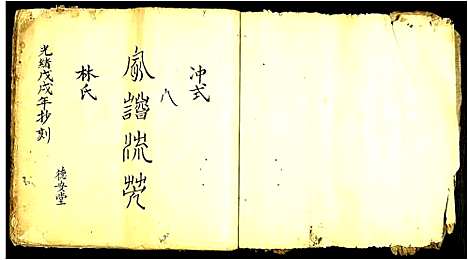 冲式
八
家譜流芳
林氏
光緒戊戌年抄刻
德安堂